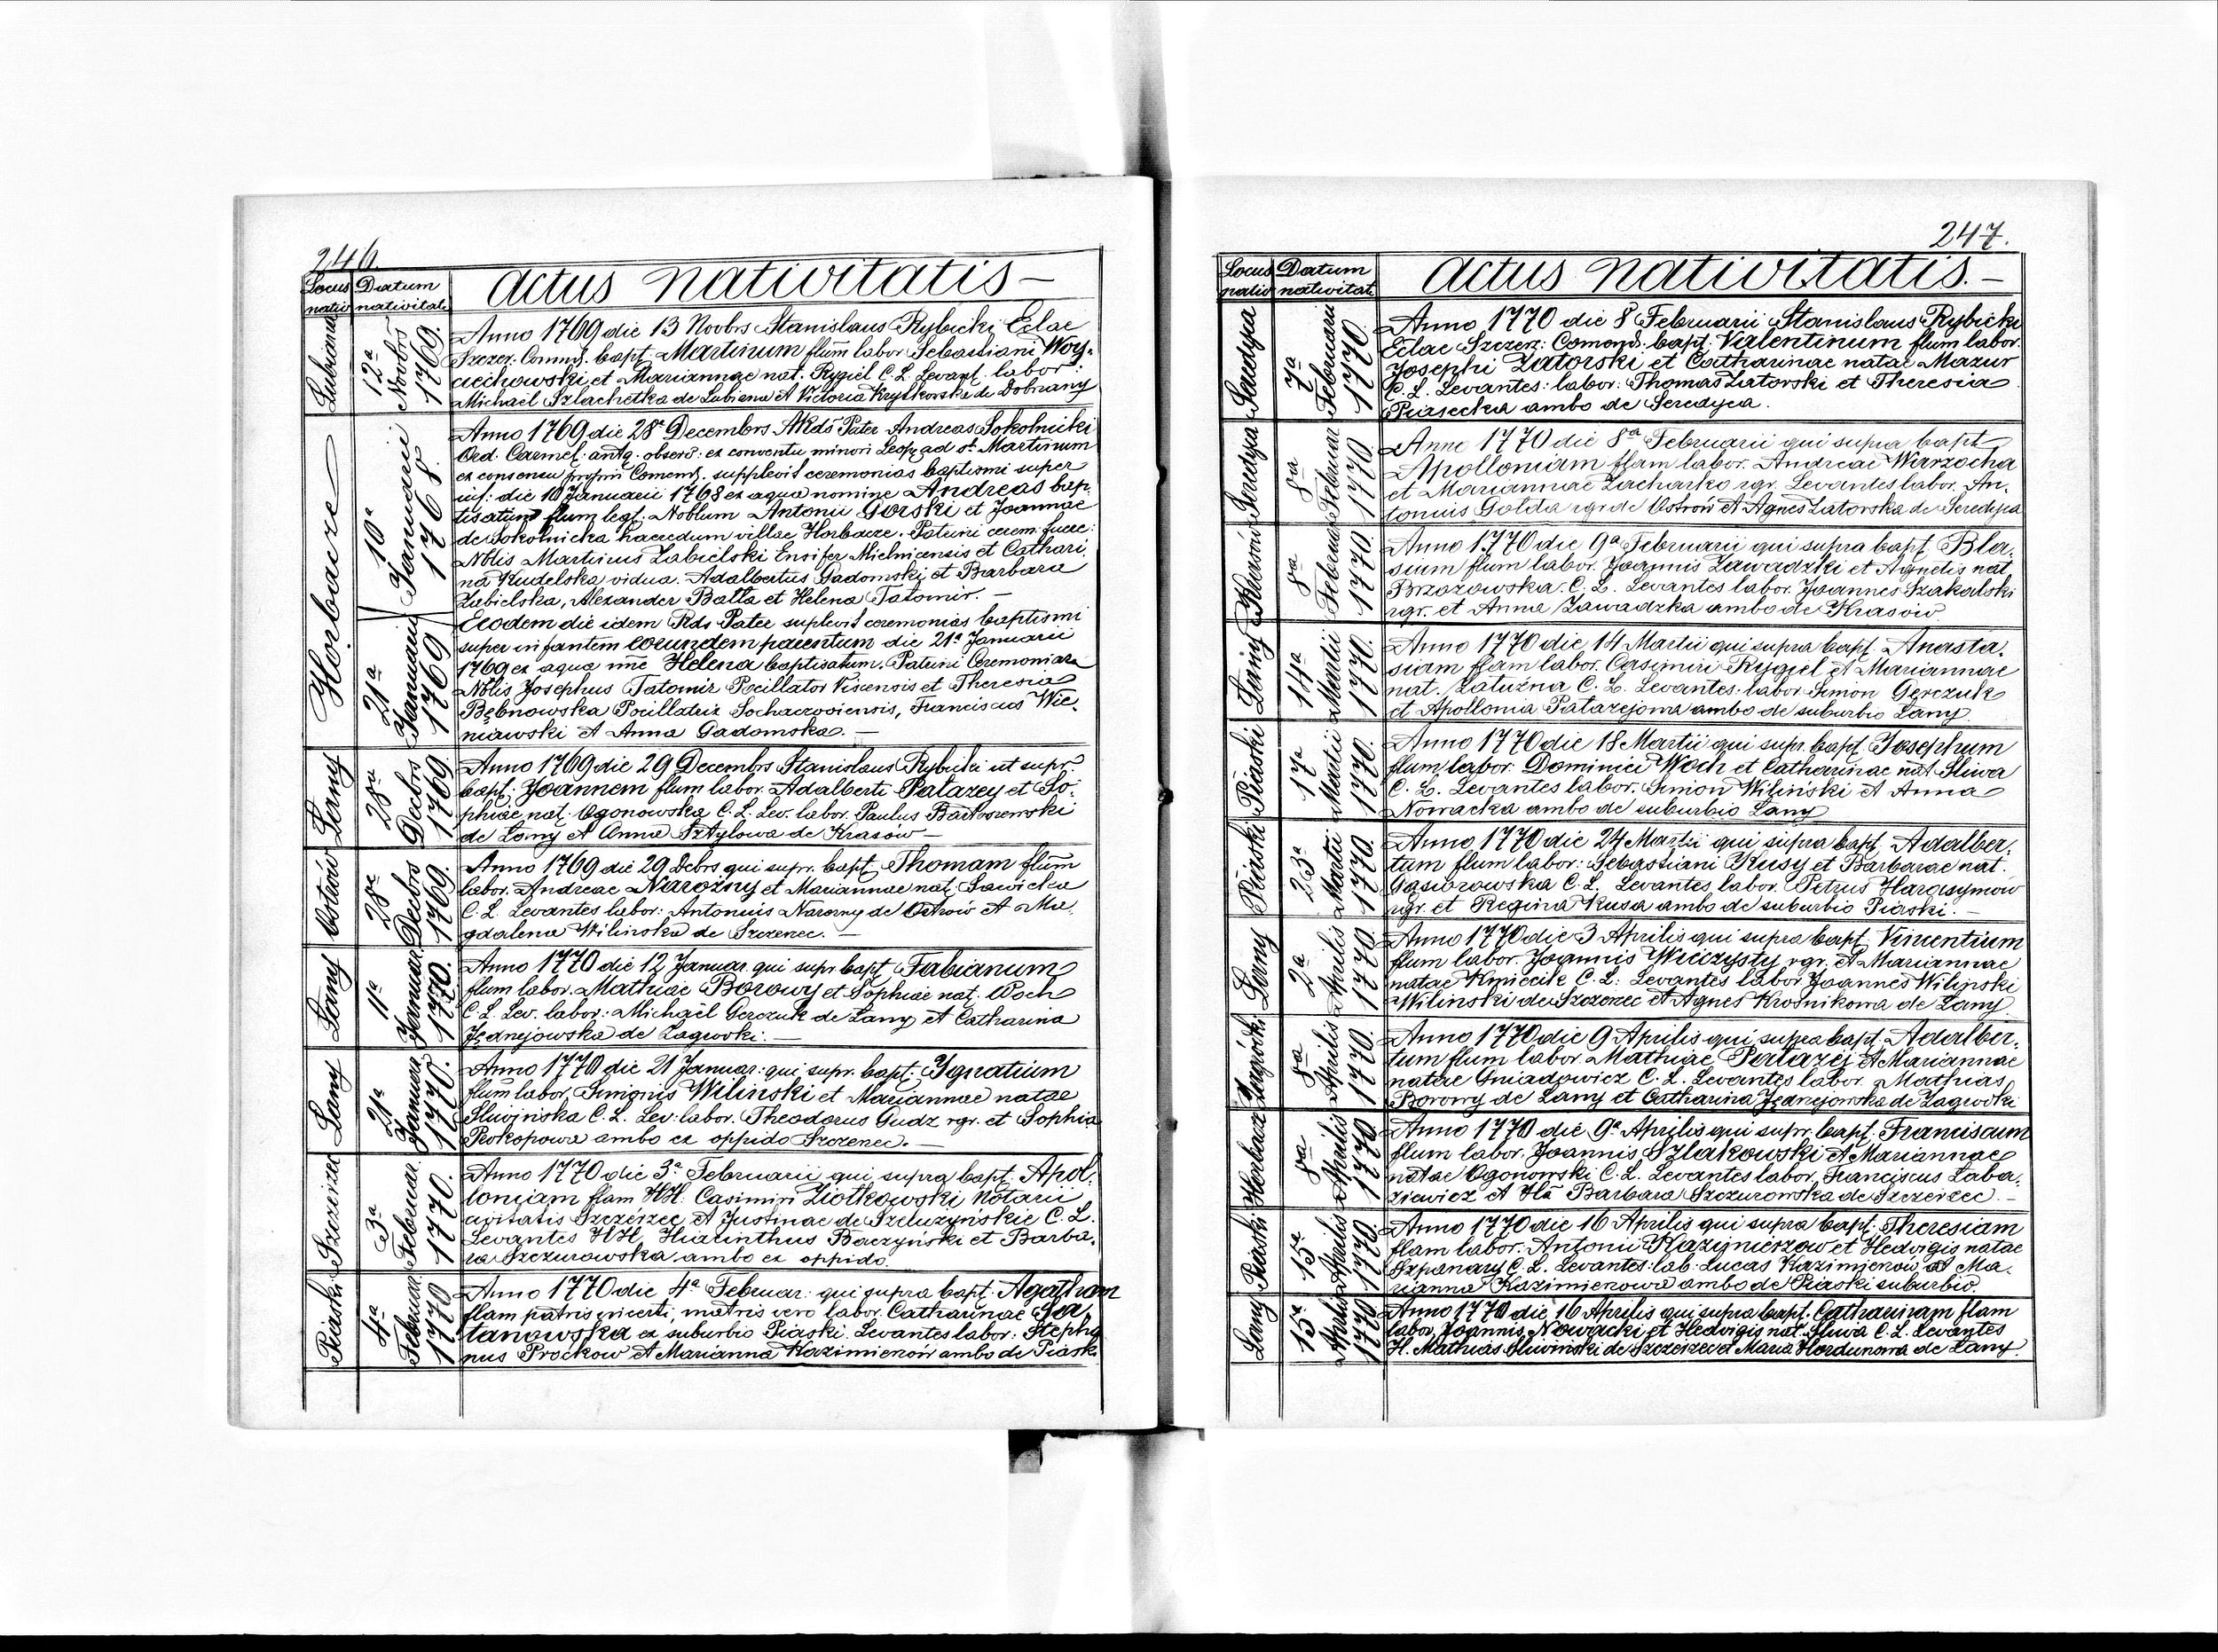 246.
Locus nativ
Datum nativitat.
Actus nativitatis –
Lubiana
12a Novbrs 1769.
Anno 1769 die 13 Novbrs Stanislaus Rybicki Eclae
Szczer. Comnd. bapt. Martinum flum labor Sebastiani Woy-
ciechowski et Mariannae nat. Rygiel C. L. Levant. labor:
Michael Szlachetka de Lubiana et Victoria Kryskowska de Dobrzany
Horbacze
10a Januarii 1768.
Anno 1769 die 28a Decembrs ARds Pater Andreas Sokolnicki
Ord. Carmel. antq. observ: ex conventu minori Leop. ad st Martinum
ex consensu Comend. supplevit ceremonias baptismi super
inf: die 10 Januarii 1768 ex aqua nomine Andreas bap-
tisatum flum legt. Noblum Antonii Gorski et Joannae
de Sokolnicka haeredum villae Horbacze. Patrini cerem. fuere:
Nblis Martinus Zabielski Ensifer Mielnicensis et Cathari
na Kudelska vidua. Adalbertus Gadomski et Barbara
Zabielska, Alexander Balta et Helena Tatomir. –
21a Januarii 1769
Eodem die idem Rds Pater suplevit ceremonias baptismi
super infantem eorundem parentum die 21a Januarii
1769 ex aqua nne Helena baptisatum. Patrini Ceremoniar.
Nblis Josephus Tatomir Pocillator Viscensis et Theresia
Bębnowska Pocillatrix Sochaczoviensis, Franciscus Wie-
niawski et Anna Gadomska. –
Łany
28va Decbrs 1769
Anno 1769 die 29 Decembrs Stanislaus Rybicki ut supr.
bapt. Joannem flum labor. Adalberti Patazey et So-
phiae nat. Ogonowska C. L. Lev. labor. Paulus Bartoszewski
de Łany et Anna Sztylowa de Krasów –
Ostrów
28a Decbrs 1769.
Anno 1769 die 29 Debrs qui supr. bapt. Thomam flum
labor. Andreae Narożny et Mariannae nat. Sawicka
C. L. Levantes labor: Antonius Narozny de Ostrów et Ma-
gdalena Wilinska de Szczerzec. –
Łany
11a Januar. 1770.
Anno 1770 die 12 Januar. qui supr bapt. Fabianum
flum labor. Mathiae Borowy et Sophiae nat. Woch
C. L. Lev. labor: Michael Gerczuk de Łany et Catharina
Jędrzejowska de Zagrodki. –
Łany
21a Januar. 1770.
Anno 1770 die 21 Januar: qui supr. bapt: Ignatium
flum labor. Simonis Wilinski et Mariannae natae
Sliwińska C. L. Lev: labor. Theodorus Gudz rgr. et Sophia
Prokopowa ambo ex oppido Szczerzec. –
Szczerzec
3a Februar. 1770.
Anno 1770 die 3a Februarii qui supra bapt: Apol-
loniam flam HH. Casimiri Ziołkowski Notarii
civitatis Szczérzec et Justinae de Szeluzyńskie C. L.
Levantes HH. Hiacinthus Baczyński et Barba-
ra Szczurowska ambo ex oppido.
Piaski
4a Februar 1770
Anno 1770 die 4a Februar: qui supra bapt: Agatham
flam patris incerti, matris vero labor. Catharinae Soł-
tanowska ex suburbio Piaski. Levantes labor: Stepha
nus Prockow et Marianna Kazimierzów ambo de Piaski
247.
Locus nativ
Datum nativitat
Actus nativitatis. –
Seredyca
7a Februarii 1770.
Anno 1770 die 8 Februarii Stanislaus Rybicki
Eclae Szczerz: Comend: bapt. Valentinum flum labor.
Josephi Zatorski et Catharinae natae Mazur
C. L. Levantes: labor: Thomas Zatorski et Theresia
Piasecka ambo de Seredyca.
Seredyca
8a Februar 1770
Anno 1770 die 8va Februarii qui supra bapt
Apolloniam flam labor. Andreae Warzocha
et Mariannae Zacharko rgr. Levantes labor. An-
tonius Gołda rgr de Ostrów et Agnes Zatorska de Seredyca
Krasów
8a Februar 1770.
Anno 1770 die 9a Februarii qui supra bapt. Bla-
sium flum labor. Joannis Zawadzki et Agnetis nat
Brzozowska. C. L. Levantes labor. Joannes Szakalski
rgr. et Anna Zawadzka ambo de Krasów
Łany
14a Martii 1770.
Anno 1770 die 14 Martii qui supra bapt. Anasta-
siam flam labor. Casimiri Rygiel et Mariannae
nat. Zatużna C. L. Levantes: labor Simon Gerczuk
et Apollonia Patazejowa ambo de suburbio Łany.
Piaski
17a Martii 1770.
Anno 1770 die 18 Martii qui supr. bapt. Josephum
flum labor. Dominici Woch et Catharinae nat Sliwa
C. L. Levantes labor. Simon Wilinski et Anna
Nowacka ambo de suburbio Łany
Piaski
23a Martii 1770
Anno 1770 die 24 Martii qui supra bapt. Adalber-
tum flum labor: Sebastiani Kusy et Barbarae nat.
Gąsiorowska C. L. Levantes labor. Petrus Harasymow
rgr. et Regina Kusa ambo de suburbio Piaski. –
Łany
2a Aprilis 1770.
Anno 1770 die 3 Aprilis qui supra bapt. Vincentium
flum labor. Joannis Wieczysty rgr. et Mariannae
natae Kmiecik C. L. Levantes labor Joannes Wilinski
Wilinski de Szczerzec et Agnes Krosnikowa de Łany
Zagródki
8a Aprilis 1770.
Anno 1770 die 9 Aprilis qui supra bapt. Adalber-
tum flum labor. Mathiae Patazéj et Mariannae
natae Gniadowicz C. L. Levantes labor. Mathias
Borowy de Łany et Catharina Jędrzejowska de Zagrodki
Horbacz
8a Aprilis 1770
Anno 1770 die 9a Aprilis qui supr. bapt. Franciscum
flum labor. Joannis Szlakowski et Mariannae
natae Ogonowski C. L. Levantes labor. Franciscus Łaba-
ziewicz et Hta Barbara Szczurowska de Szczerzec. –
Piaski
15a Aprilis 1770.
Anno 1770 die 16 Aprilis qui supra bapt. Theresiam
flam labor. Antonii Kazimierzow et Hedvigis natae
Szpanary C. L. Levantes: lab. Lucas Kazimierzow et Ma-
rianna Kazimierzowa ambo de Piaski suburbio.
Łany
15a Aprilis 1770
Anno 1770 die 16 Aprilis qui supra bapt. Catharinam flam
labor. Joannis Nowacki et Hedvigis nat. Sliwa C. L. Levantes
H. Mathias Sliwinski de Szczerzec et Maria Hordunowa de Łany